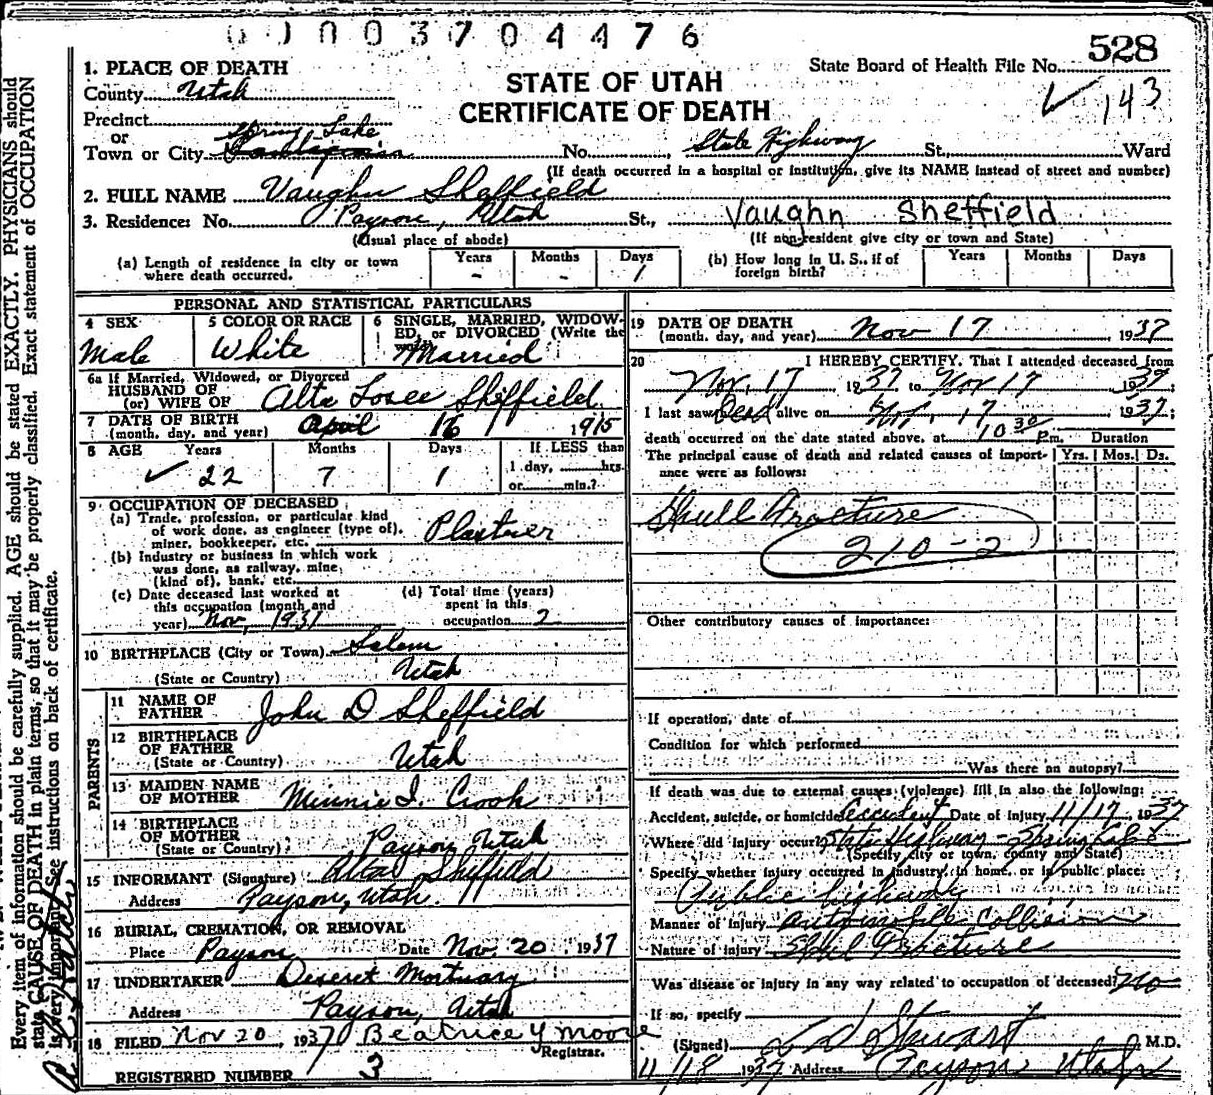 0000370 4476
528
1. PLACE OF DEATH
STATE OF UTAH
CERTIFICATE OF DEATH
State Board of Health File No.
143
County Utah
Precinct
or
Spring Lake
Town or City No. State Highway St., Ward
(If death occurred in a hospital or institution, give its NAME instead of street and number)
2. FULL NAME Vaughn Sheffield
3. Residence: No. Payson, Utah St., Vaughn Sheffield
(Usual place of abode) (If non-resident give city or town and State)
(a) Length of residence in city or town where death occurred. Years - Months - Days 1
(b) How long in U. S., if of foreign birth? Years Months Days
PERSONAL AND STATISTICAL PARTICULARS
4 SEX Male
5 COLOR OR RACE White
6 SINGLE, MARRIED, WIDOWED, or DIVORCED (Write the word) Married
6a If Married, Widowed, or Divorced
HUSBAND OF
(or) WIFE OF Alta Losee Sheffield
7 DATE OF BIRTH
(month, day, and year) April 16 1915
8 AGE Years 22 Months 7 Days 1 If LESS than 1 day, hrs. or min.?
9 OCCUPATION OF DECEASED
(a) Trade, profession, or particular kind
of work done, as engineer (type of),
miner, bookkeeper, etc. Plasterer
(b) Industry or business in which work
was done, as railway, mine,
(kind of), bank, etc.
(c) Date deceased last worked at
this occupation (month and
year) Nov, 1937
(d) Total time (years)
spent in this
occupation 2
10 BIRTHPLACE (City or Town) Salem
(State or Country) Utah
PARENTS
11 NAME OF
FATHER John D Sheffield
12 BIRTHPLACE
OF FATHER
(State or Country) Utah
13 MAIDEN NAME
OF MOTHER Minnie I. Crook
14 BIRTHPLACE
OF MOTHER
(State or Country) Payson, Utah
15 INFORMANT (Signature) Alta Sheffield
Address Payson, Utah.
16 BURIAL, CREMATION, OR REMOVAL
Place Payson Date Nov. 20 1937
17 UNDERTAKER Deseret Mortuary
Address Payson, Utah
18 FILED Nov 20, 1937 Beatrice Y Moore
Registrar.
REGISTERED NUMBER 3
19 DATE OF DEATH
(month, day, and year) Nov 17 1937
20 I HEREBY CERTIFY, That I attended deceased from
Nov. 17 1937 to Nov 17 1937
I last saw Dead alive on Nov. 17 1937
death occurred on the date stated above, at 10 30 P.m. Duration
The principal cause of death and related causes of importance were as follows: Yrs. Mos. Ds.
Skull Fracture
210-2
Other contributory causes of importance:
If operation, date of
Condition for which performed
Was there an autopsy?
If death was due to external causes (violence) fill in also the following:
Accident, suicide, or homicide Accident Date of Injury 11/17 1937
Where did injury occur? State Highway - Spring Lake
(Specify city or town, county and State)
Specify whether injury occurred in industry, in home, or in public place:
Public highway
Manner of injury Automobile Collision
Nature of injury Skull Fracture
Was disease or injury in any way related to occupation of deceased? No
If so, specify
(Signed) L D Stewart M.D.
11/18 1937 Address Payson Utah
Every item of information should be carefully supplied. AGE should be stated EXACTLY. PHYSICIANS should
state CAUSE OF DEATH in plain terms, so that it may be properly classified. Exact statement of OCCUPATION
is very important. See instructions on back of certificate.